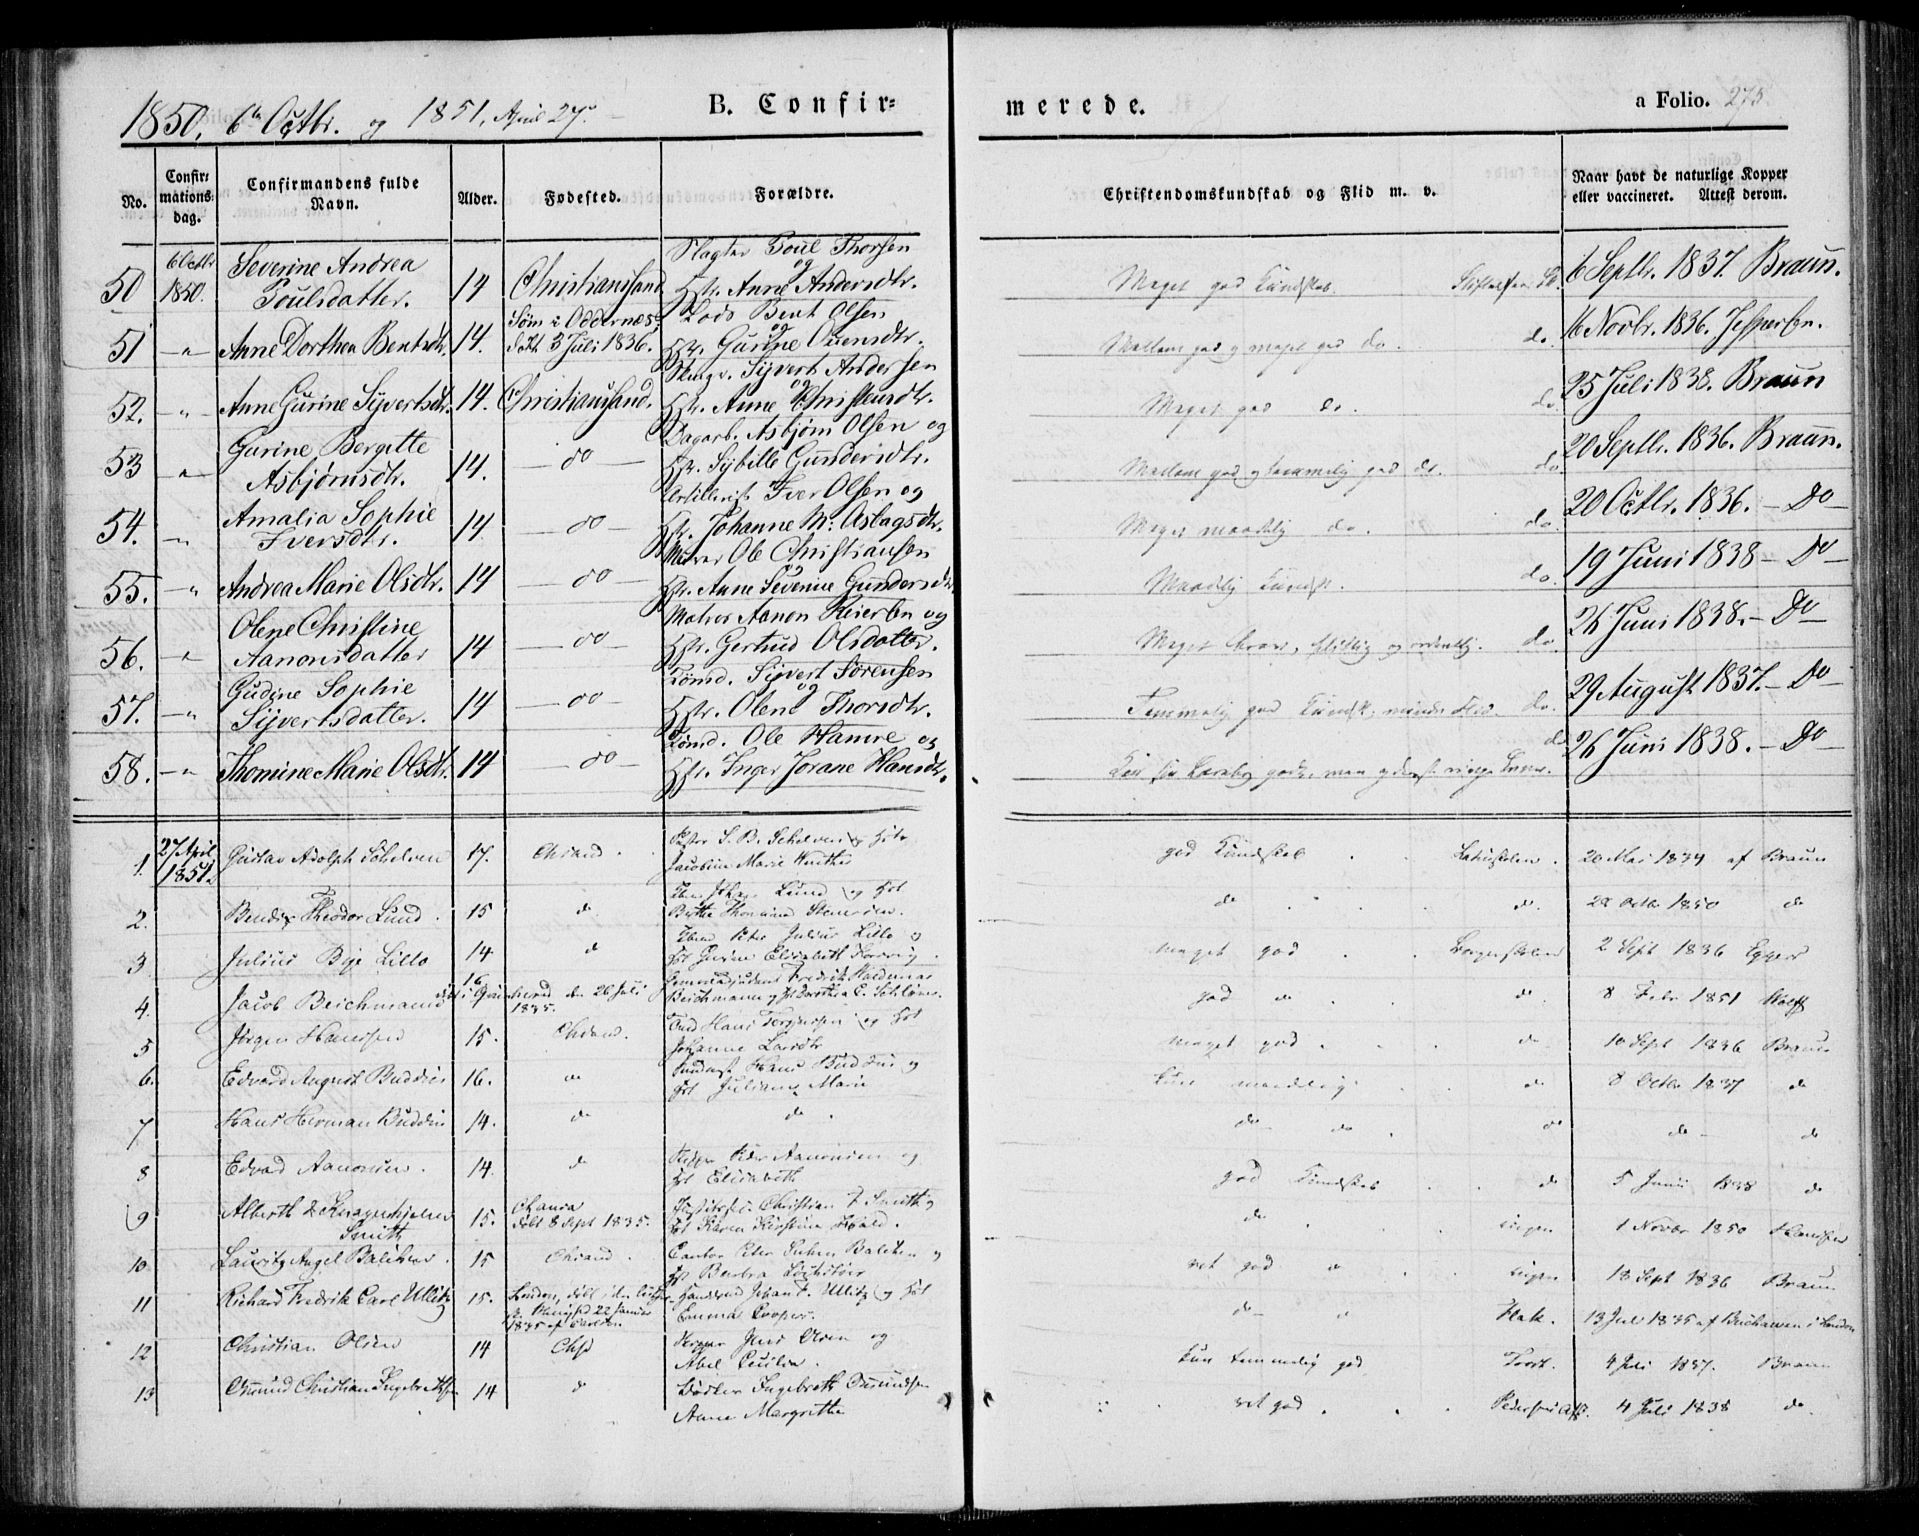 1850, 6te Octbr. og 1851, April 27de
B. Confirmerede.
a Folio. 275.
No.
Confirmationsdag.
Confirmandens fulde Navn.
Alder.
Fødested.
Forældre.
Christendomskundskab og Flid m. v.
Naar havt de naturlige Kopper eller vaccineret. Attest derom.
50 6 Octbr 1850. Severine Andrea Poulsdatter. 14 Christianssand Slagter Poul Thorsen og Hstr. Anne Andersdtr. Meget god Kundskab. 6 Septbr. 1837. Braun.
51 -"- Anne Dorthea Bentsdtr. 14. Søm i Oddernæs, født 3 Juli 1836. Lods Bent Olsen og Hstr. Gurine Ouensdtr. Mellem god og meget god do. do. 16 Novbr. 1836. Jespersen.
52. -"- Anne Gurine Sijvertsdtr. 14. Christianssand. Sijvert Andersen og Hstr. Anne Christensdtr. Meget god do. do. 25 Juli 1838. Braun
53 " Gurine Bergitte Asbjørnsdtr. 14. - do - Dagarb. Asbjørn Olsen og Hstr. Sybille Gundersdtr. Mellem god og temmelig god do. do 20 Septbr. 1836. Braun.
54. -"- Amalia Sophie Iversdtr. 14. - do - Artillerist Iver Olsen og Hstr. Johanne M. Aslagsdtr. Meget maadelig do. do. 20 Octbr. 1836. - Do -
55. -"- Andrea Marie Olsdtr. 14 - do - Murer Ole Christiansen og Hstr. Anne Severine Gundersdtr. Maadelig Kundsk. do. 19 Juni 1838 - Do -
56. -"- Olene Christine Aanonsdatter 14 - do - Matros Aanon Reiersen og Hstr. Gertrud Olsdatter. Meget brav, flittig og ordentlig. do. 26 Juni 1838. - Do -
57. -"- Gudine Sophie Sijvertsdatter. 14 - do - Tømd. Sijvert Sørensen og Hstr. Olene Thorsdtr. Temmelig god Kundsk, mindre Flid. do. 29 August 1837. - Do -
58. -"- Thomine Marie Olsdtr. 14 - do - Tømd. Ole Hamre og Hstr. Inger Jorane Hansdtr. do 26 Juni 1838. - Do -
1. 27 April 1851. Gustav Adolph Schelven 17. Chrsand. S. B. Schelven og Hst. Jacobine Marie Winther god Kundskab Latinskolen. 20 Mai 1834 af Braun
2. Theodor Lund. 15 do Lund og Hst. Birthe Thomine do do. 28 Octbr 1850 do
3 Julius Bye Lillo 14 do Peter Julius Lillo og Hst. Gurine Elisabeth meget god Borgerskolen 2 Sept 1836 Egger
4. Jacob Beichmann 16 født i den 26 Juli 1835. Fredrik Waldemar Beichmann og Hst. Dorothea C. god do do. 8 Febr 1851 Wolff
5 Jørgen Hansen 15. Chrsand. Hans Torgersen og Hst. Johanne Larsdtr meget god do 10 Sept 1836 Braun
6. Edvard August Buddius 16. do Hans Buddius og Hst. Juliane Marie kun maadelig do 8 Octbr 1837 do
7 Hans Herman Buddius 14. do do. do do do do do
8 Edvard Aanonsen. 14. do Peder Aanonsen og Hst. Elisabeth god Kundskab do 5 Juni 1838 do
9 Alberth Smith 15. født 8 Sept 1835. Christian F. Smith og Hst. Karen Kirstine Hald. do ingen 1 Novbr 1850
10. Lauritz Angel Balchen. 15 Chrsand. Cantor Peter Balchen og Hst. Barbra ret god do ingen 18 Sept 1836 Braun
11 Richard Fredrik Carl Ullitz 15. London, født 22 Januar 1835 Johan F. Ullitz og Hst. Emma Cooper. do 13 Juli 1835 af i London
12 Christian Olsen 14 Chrsd Jens Olsen og Abel Cecilia. kun temmelig god 4 Juli 1837. Braun
13 Osmund Christian Ingebretsen 14 do Bødker Ingebreth Osmundsen Anne Margrethe ret god 4 Juli 1838 do.